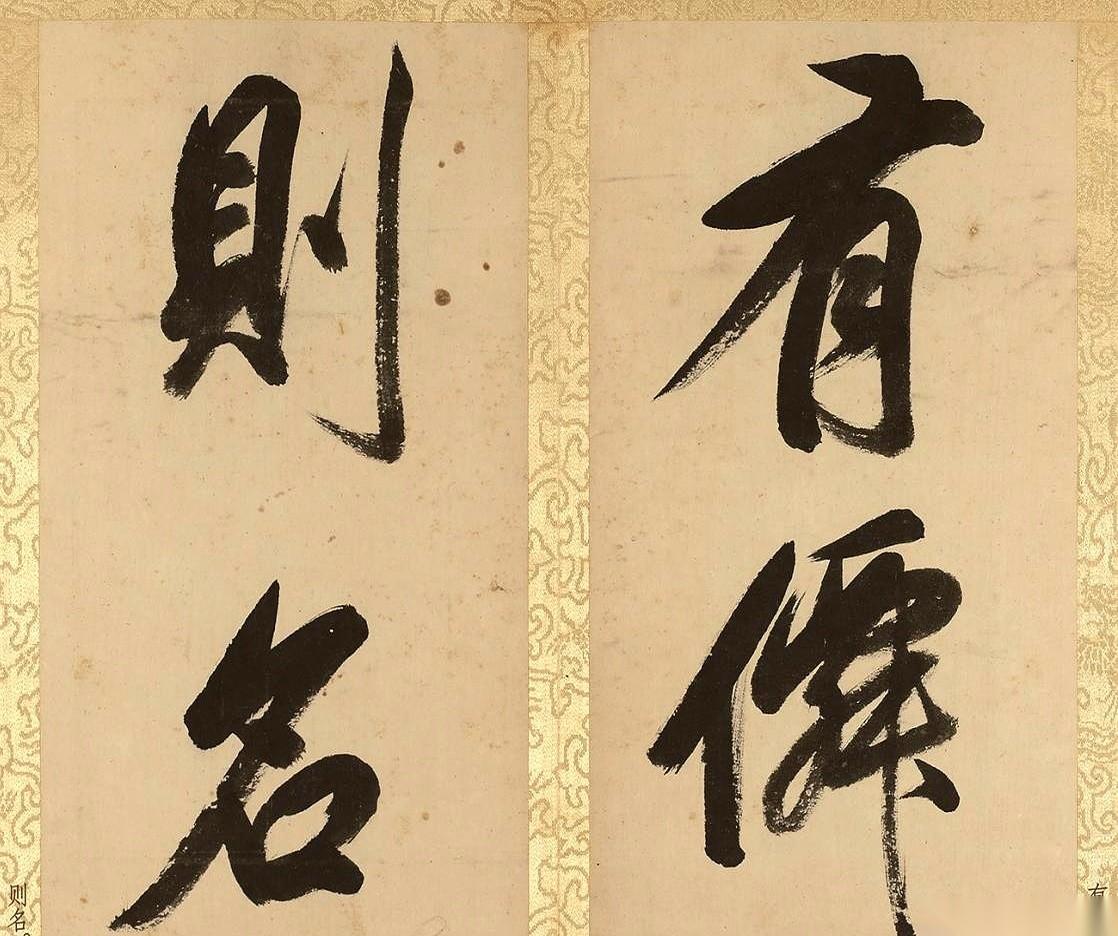 有僊
則名
有
则名。